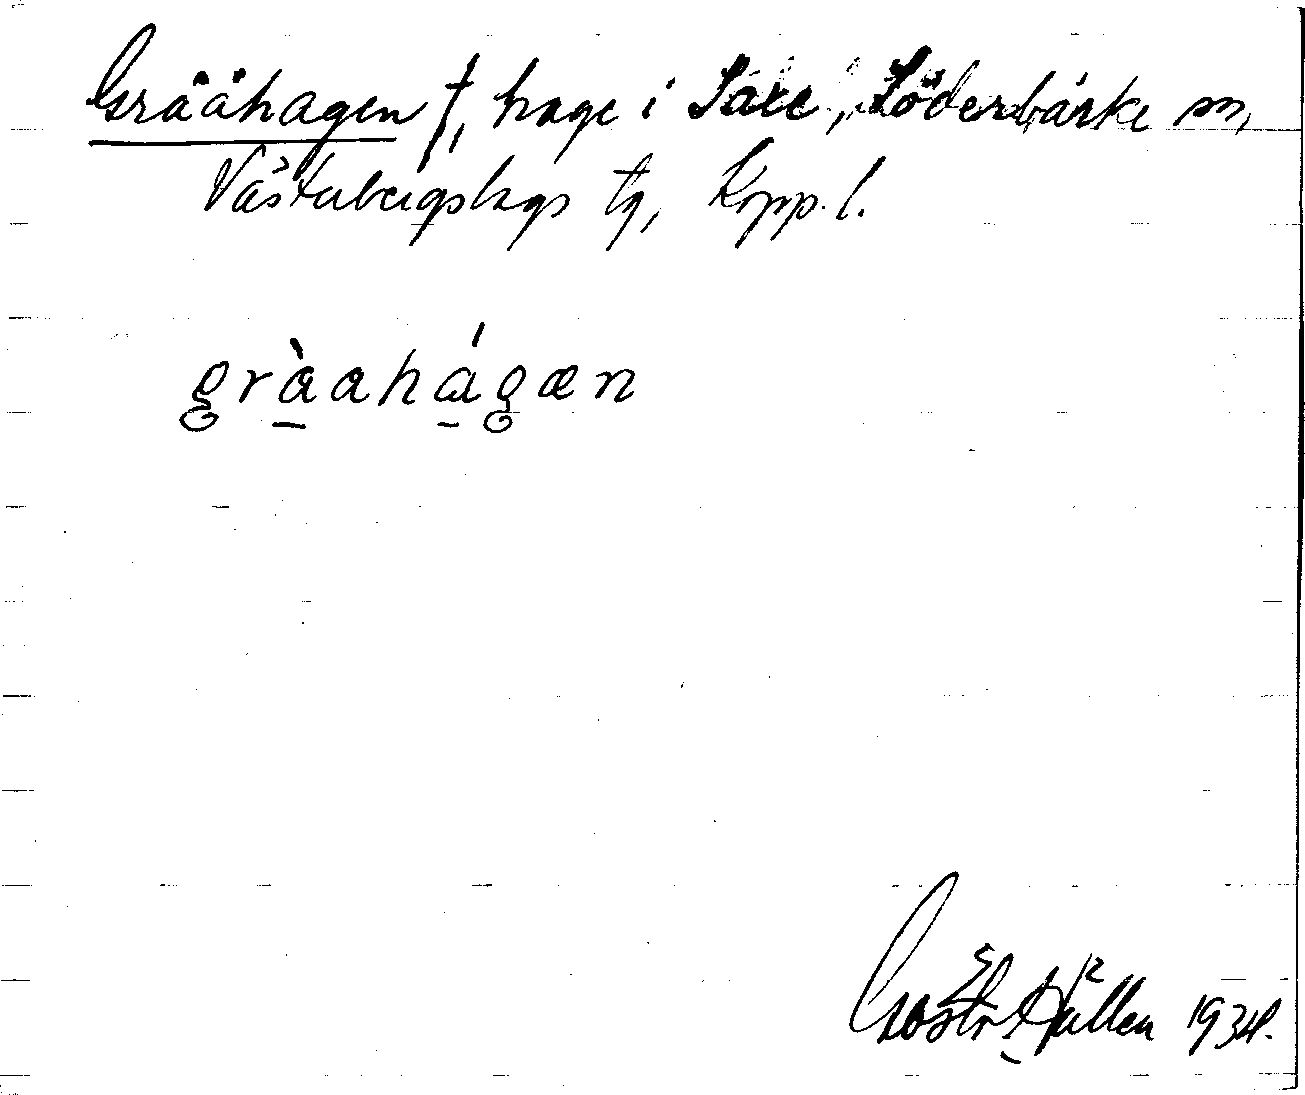 Grååhagen †, hage i Saxe, Söderbärke sn,
Västerbergslags tg, Kopp. l.
gràahágæn
Gösta Hällen 1934.